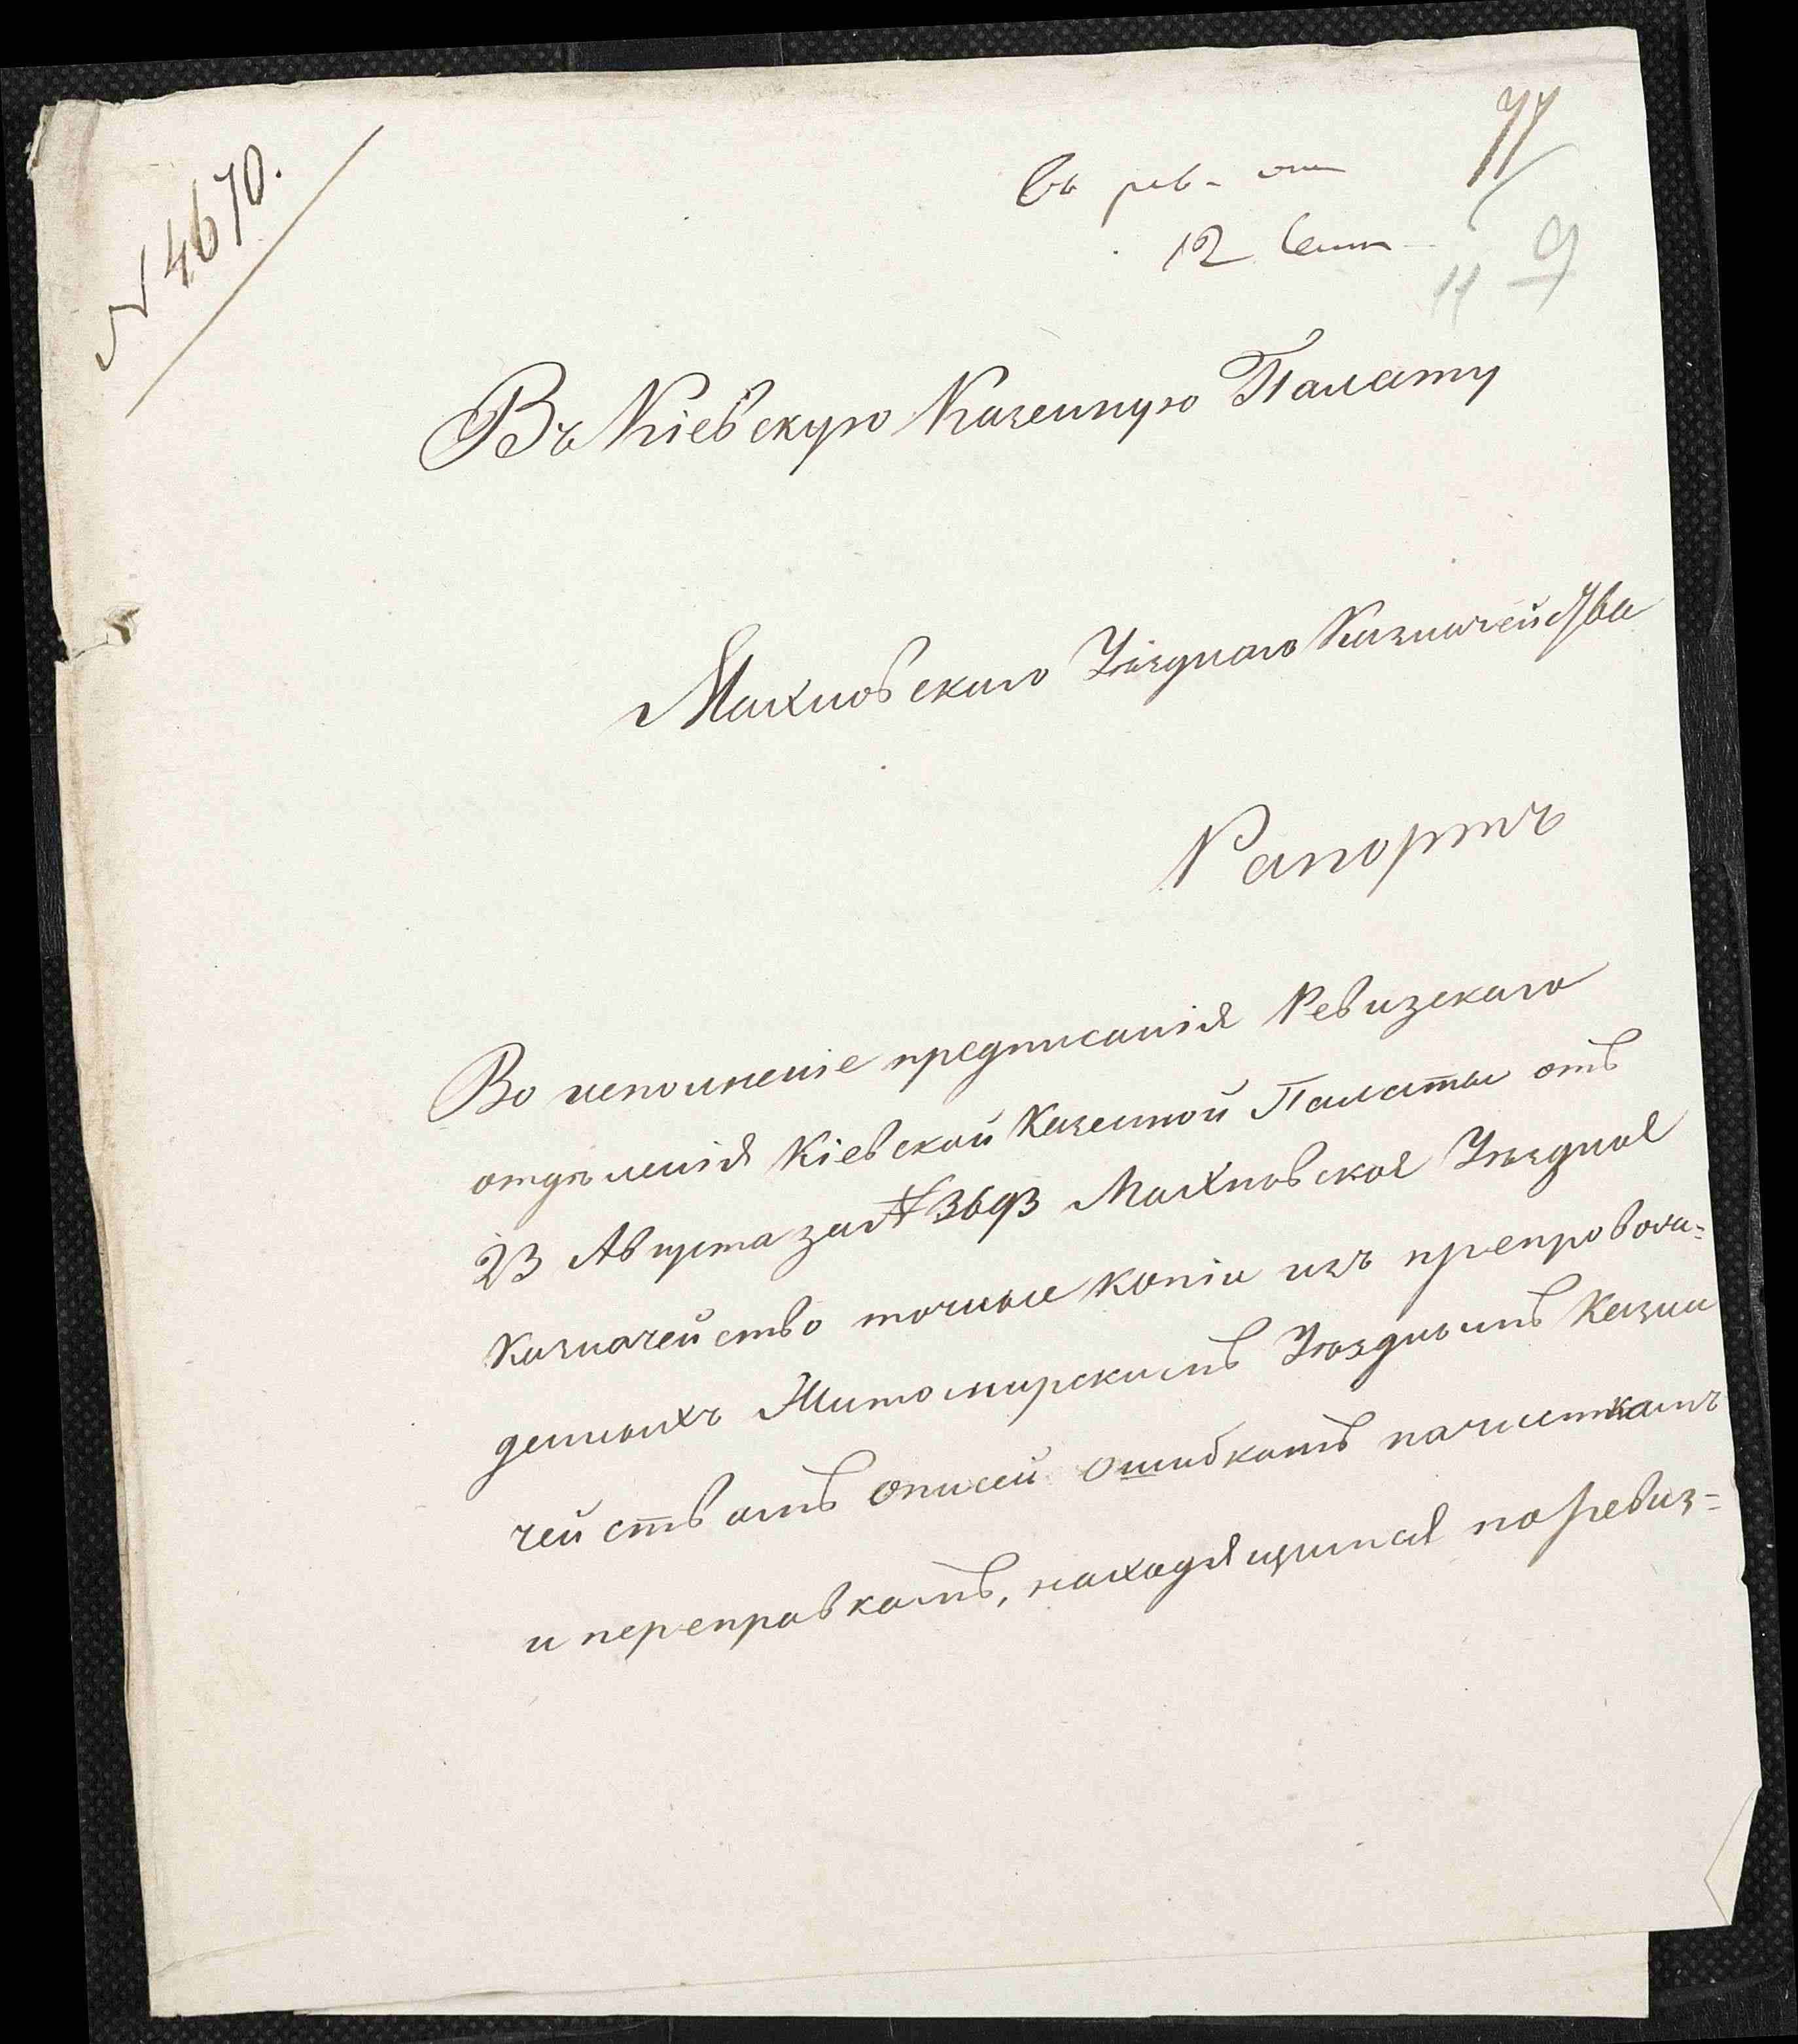 № 4670.
Въ рев. от
12 Сент
11 9
Въ Кіевскую Казенную Палату
Махновскаго Уѣзднаго Казначейства
Рапортъ
Во исполненіе предписанія Ревизскаго
отдѣленія Кіевской Казенной Палаты отъ
23 Августа за № 3693 Махновское Уѣздное
Казначейство точные копіи изъ препровож-
денныхъ Житомирскимъ Уѣзднымъ Казна
чействомъ описей ошибкамъ почисткамъ
и переправкамъ, находящимся по ревиз=